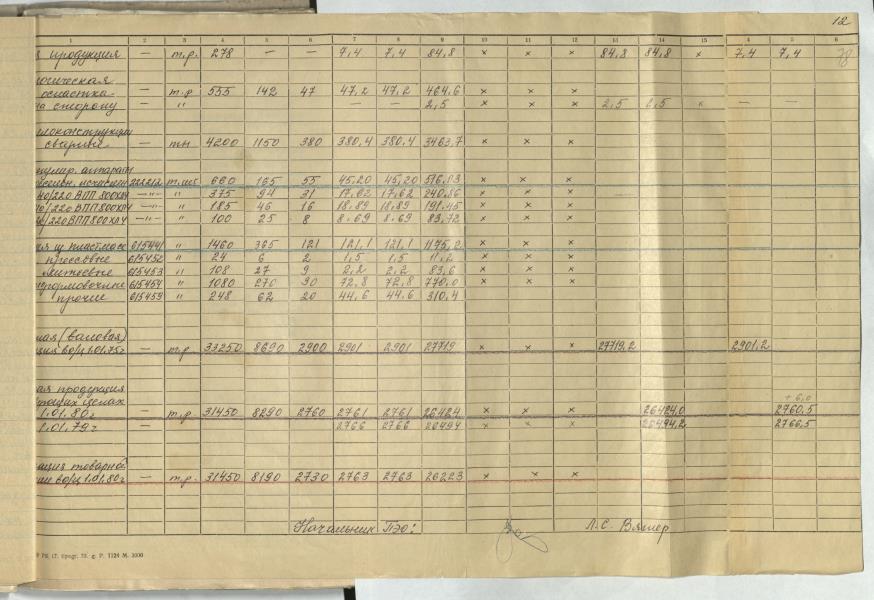 12
1 2 3 4 5 6 7 8 9 10 11 12 13 14 15 4 5 6
я продукция — т.р. 278 — — 7,4 7,4 84,8 × × × 84,8 84,8 × 7,4 7,4
логическая
оснастка — т.р 555 142 47 47,2 47,2 464,6 × × ×
на сторону — " — — 2,5 × × × 2,5 2,5 × — —
локонструкции
сварные — тн 4200 1150 380 380,4 380,4 3463,7 × × ×
аппараты
222212 т.шт. 660 165 55 45,20 45,20 516,03 × × ×
40/220 ВПП 800ХЛ4 —"— " 375 94 31 17,62 17,62 240,86 × × ×
/220 ВПП 800ХЛ4 —"— " 185 46 16 18,89 18,89 191,45 × × ×
/220 ВПП 800ХЛ4 " 100 25 8 8,69 8,69 83,72 × × ×
я из пластмасс 615441 " 1460 365 121 121,1 121,1 1175,2 × × ×
прессовые 615452 " 24 6 2 1,5 1,5 11,2 × × ×
литьевые 615453 " 108 27 9 2,2 2,2 83,6 × × ×
формовочные 615454 " 1080 270 90 72,8 72,8 770,0 × × ×
прочие 615459 " 248 62 20 44,6 44,6 310,4
ная (валовая)
ция во/ц 1.01.75г — т.р 33250 8690 2900 2901 2901 27719 × × × 27719,2 2901,2
ная продукция
ующих ценах +6,0
1.01.80г — т.р. 31450 8290 2760 2761 2761 26424 × × × 26424,0 2760,5
1.01.79г — 2766 2766 26494 × × × 26494,2 2766,5
ация товарной
ии во/ц 1.01.80г — т.р. 31450 8190 2730 2763 2763 26223 × × ×
Начальник ПЭО: Л.С. Вялер
РК, 17. 1124 М. 3000